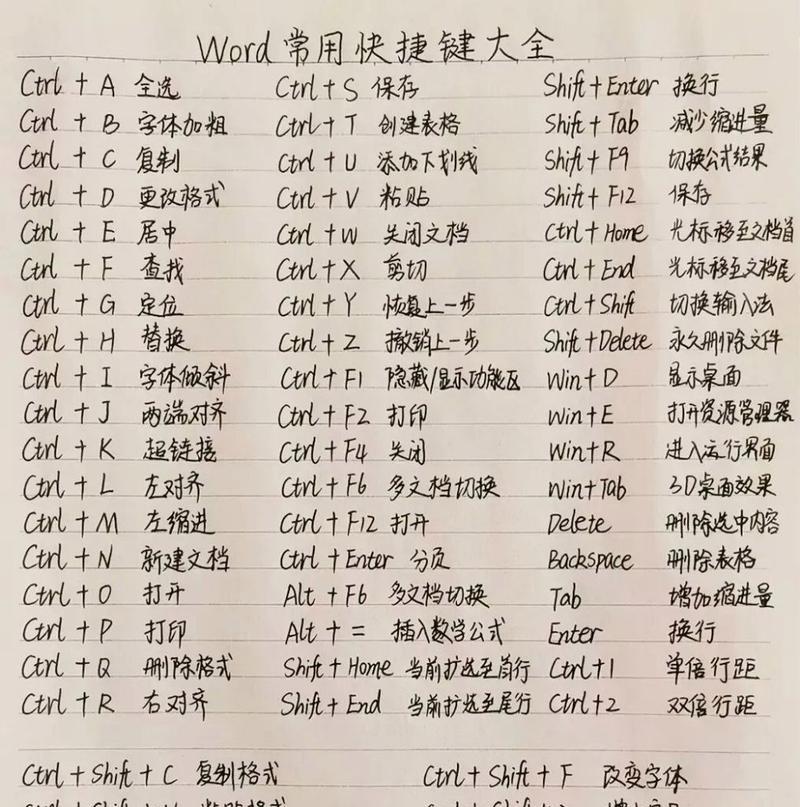 Word常用快捷键大全
Ctrl + A 全选 Ctrl + S 保存 Shift + Enter 换行
Ctrl + B 字体加粗 Ctrl + T 创建表格 Shift + Tab 减少缩进量
Ctrl + C 复制 Ctrl + U 添加下划线 Shift + F9 切换公式结果
Ctrl + D 更改格式 Ctrl + V 粘贴 Shift + F12 保存
Ctrl + E 居中 Ctrl + W 关闭文档 Ctrl + Home 光标移至文档首
Ctrl + F 查找 Ctrl + X 剪切 Ctrl + End 光标移至文档尾
Ctrl + G 定位 Ctrl + Y 恢复上一步 Ctrl + Shift 切换输入法
Ctrl + H 替换 Ctrl + Z 撤销上一步 Shift + Delete 永久删除文件
Ctrl + I 字体倾斜 Ctrl + F1 隐藏/显示功能区 Win + D 显示桌面
Ctrl + J 两端对齐 Ctrl + F2 打印 Win + E 打开资源管理器
Ctrl + K 超链接 Ctrl + F4 关闭 Win + R 进入运行界面
Ctrl + L 左对齐 Ctrl + F6 多文档切换 Win + Tab 3D桌面效果
Ctrl + M 左缩进 Ctrl + F12 打开 Delete 删除选中内容
Ctrl + N 新建文档 Ctrl + Enter 分页 Backspace 删除表格
Ctrl + O 打开 Alt + F6 多文档切换 Tab 增加缩进量
Ctrl + P 打印 Alt + = 插入数学公式 Enter 换行
Ctrl + Q 删除格式 Shift + Home 当前扩选至首行 Ctrl + 1 单倍行距
Ctrl + R 右对齐 Shift + End 当前扩选至尾行 Ctrl + 2 双倍行距
Ctrl + Shift + C 复制格式 Ctrl + Shift + F 改变字体